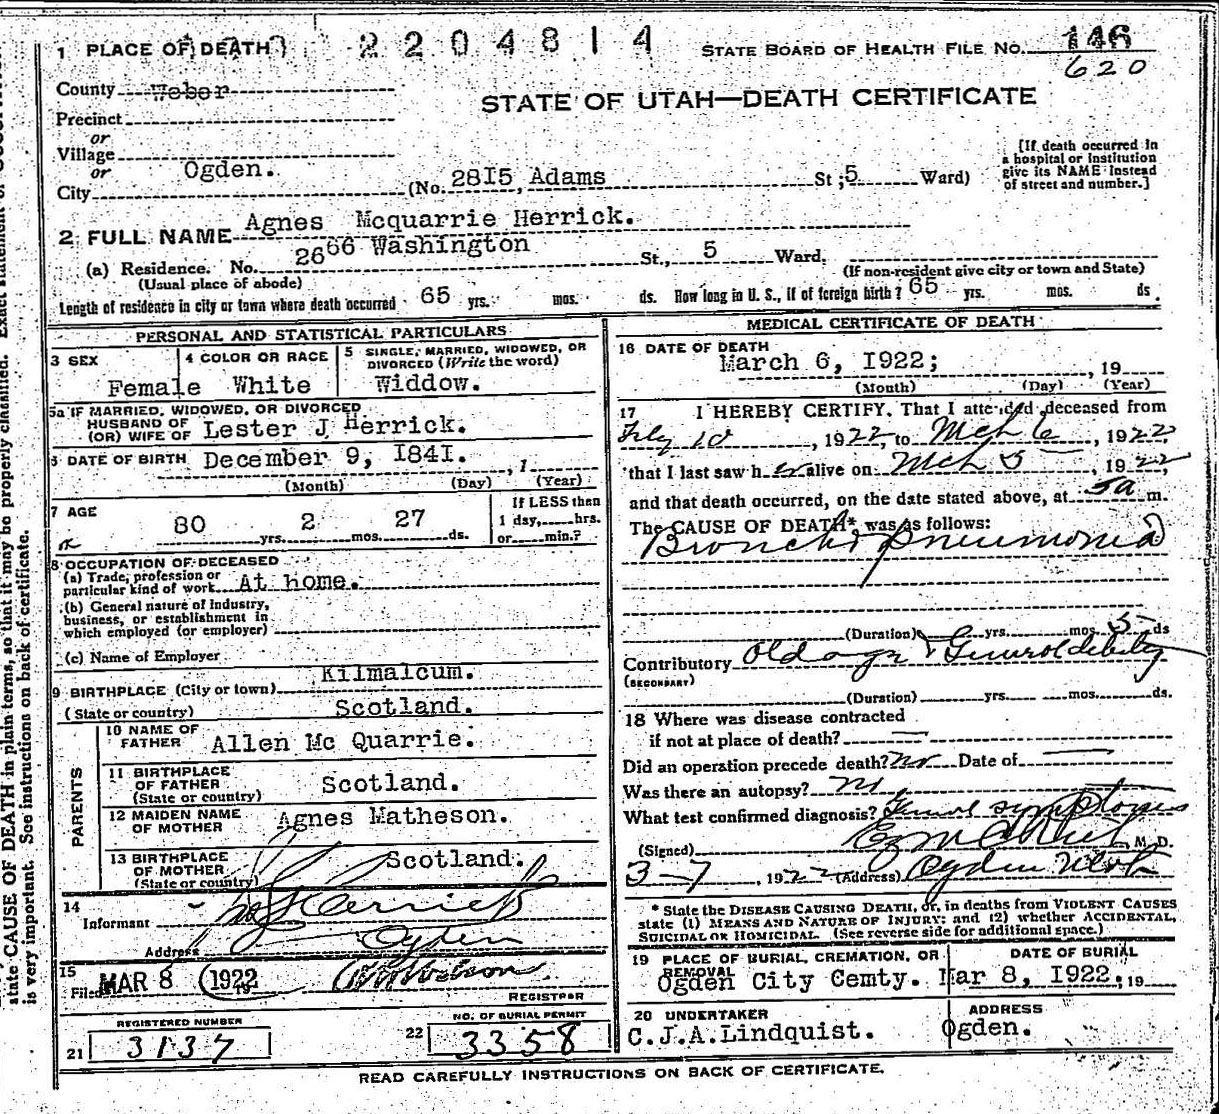 1 PLACE OF DEATH 2204814 STATE BOARD OF HEALTH FILE NO. 146
620
County Weber
STATE OF UTAH—DEATH CERTIFICATE
Precinct
or
Village
or
City Ogden. (No. 28I5, Adams St; 5 Ward)
[If death occurred in
a hospital or institution
give its NAME instead
of street and number.]
2 FULL NAME Agnes Mcquarrie Herrick.
(a) Residence. No. 2666 Washington St., 5 Ward.
(Usual place of abode) (If non-resident give city or town and State)
Length of residence in city or town where death occurred 65 yrs. mos. ds. How long in U. S., if of foreign birth? 65 yrs. mos. ds.
PERSONAL AND STATISTICAL PARTICULARS
3 SEX Female
4 COLOR OR RACE White
5 SINGLE, MARRIED, WIDOWED, OR
DIVORCED (Write the word)
Widdow.
5a IF MARRIED, WIDOWED, OR DIVORCED
HUSBAND OF
(OR) WIFE OF Lester J Herrick.
6 DATE OF BIRTH December 9, I84I. , 1
(Month) (Day) (Year)
7 AGE 80 yrs. 2 mos. 27 ds.
If LESS than
1 day, hrs.
or min.?
8 OCCUPATION OF DECEASED
(a) Trade, profession or
particular kind of work At home.
(b) General nature of Industry,
business, or establishment in
which employed (or employer)
(c) Name of Employer
9 BIRTHPLACE (City or town) Kilmalcum.
(State or country) Scotland.
PARENTS
10 NAME OF
FATHER Allen Mc Quarrie.
11 BIRTHPLACE
OF FATHER
(State or country) Scotland.
12 MAIDEN NAME
OF MOTHER Agnes Matheson.
13 BIRTHPLACE
OF MOTHER
(State or country) Scotland.
14
Informant
Address Ogden
15
Filed MAR 8 1922 19
REGISTRAR
REGISTERED NUMBER
21 3137
NO. OF BURIAL PERMIT
22 3358
MEDICAL CERTIFICATE OF DEATH
16 DATE OF DEATH
March 6, I922; , 19
(Month) (Day) (Year)
17 I HEREBY CERTIFY, That I attended deceased from
10, 1922, to Mch 6, 1922,
that I last saw her alive on Mch 5, 1922
and that death occurred, on the date stated above, at 5a m.
The CAUSE OF DEATH* was as follows:
Broncho pneumonia
(Duration) yrs. mos. 5 ds
Contributory Old age & General debility
(SECONDARY)
(Duration) yrs. mos. ds.
18 Where was disease contracted
if not at place of death?
Did an operation precede death? no Date of
Was there an autopsy? no
What test confirmed diagnosis? symptoms
(Signed) M. D.
3-7, 1922 (Address) Ogden Utah
* State the DISEASE CAUSING DEATH, or, in deaths from VIOLENT CAUSES
state (1) MEANS AND NATURE OF INJURY; and (2) whether ACCIDENTAL,
SUICIDAL OR HOMICIDAL. (See reverse side for additional space.)
19 PLACE OF BURIAL, CREMATION, OR
REMOVAL
Ogden City Cemty.
DATE OF BURIAL
Mar 8, I922. , 19
20 UNDERTAKER
C.J.A.Lindquist.
ADDRESS
Ogden.
READ CAREFULLY INSTRUCTIONS ON BACK OF CERTIFICATE.
state CAUSE OF DEATH in plain terms, so that it may be properly classified. Exact statement of
is very important. See instructions on back of certificate.